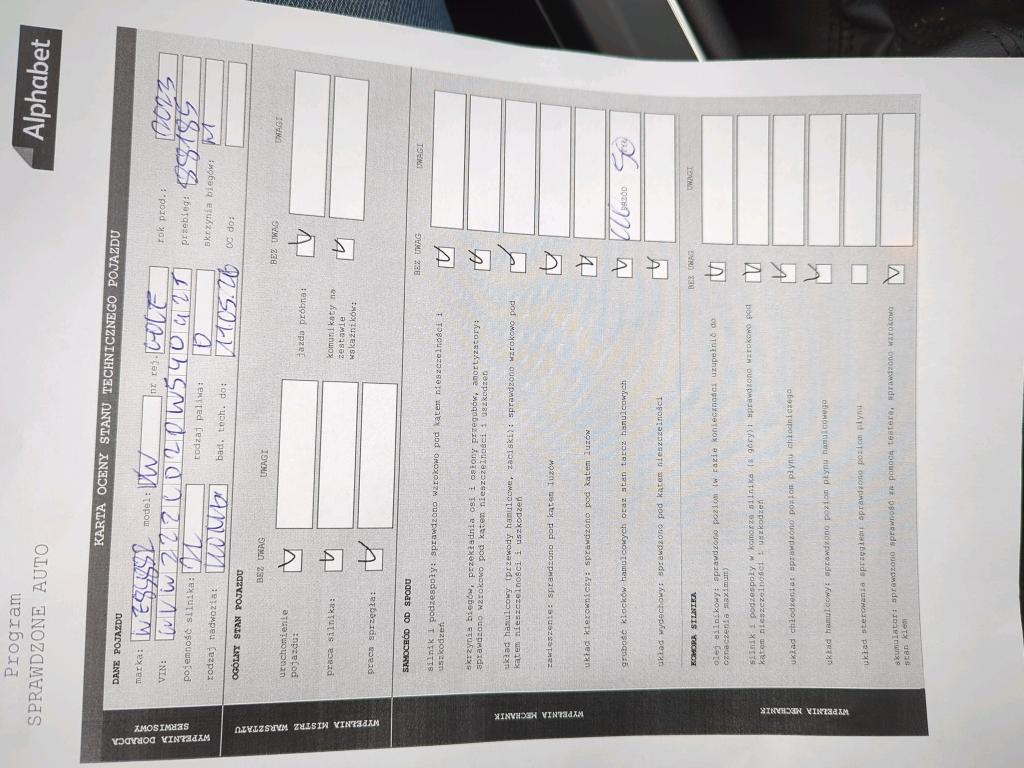 Alphabet
Program
SPRAWDZONE AUTO
KARTA OCENY STANU TECHNICZNEGO POJAZDU
WYPEŁNIA DORADCA SERWISOWY
DANE POJAZDU
marka: model: VW nr rej. rok prod.: 2023
VIN: przebieg: 88185
pojemność silnika: rodzaj paliwa: D skrzynia biegów: M
rodzaj nadwozia: KOMBI bad. tech. do: 11.05.26 OC do:
WYPEŁNIA MISTRZ WARSZTATU
OGÓLNY STAN POJAZDU
BEZ UWAG UWAGI BEZ UWAG UWAGI
uruchomienie pojazdu:
jazda próbna:
praca silnika:
komunikaty na zestawie wskaźników:
praca sprzęgła:
WYPEŁNIA MECHANIK
SAMOCHÓD OD SPODU
BEZ UWAG UWAGI
silnik i podzespoły: sprawdzono wzrokowo pod kątem nieszczelności i
uszkodzeń
skrzynia biegów, przekładnia osi i osłony przegubów, amortyzatory:
sprawdzono wzrokowo pod kątem nieszczelności i uszkodzeń
układ hamulcowy (przewody hamulcowe, zaciski): sprawdzono wzrokowo pod
kątem nieszczelności i uszkodzeń
zawieszenie: sprawdzono pod kątem luzów
układ kierowniczy: sprawdzono pod kątem luzów
grubość klocków hamulcowych oraz stan tarcz hamulcowych PRZÓD
układ wydechowy: sprawdzono pod kątem nieszczelności
WYPEŁNIA MECHANIK
KOMORA SILNIKA
BEZ UWAG UWAGI
olej silnikowy: sprawdzono poziom (w razie konieczności uzupełnić do
oznaczenia maximum)
silnik i podzespoły w komorze silnika (z góry): sprawdzono wzrokowo pod
kątem nieszczelności i uszkodzeń
układ chłodzenia: sprawdzono poziom płynu chłodniczego
układ hamulcowy: sprawdzono poziom płynu hamulcowego
układ sterowania sprzęgłem: sprawdzono poziom płynu
akumulator: sprawdzono sprawność za pomocą testera, sprawdzono wzrokowo
stan klem